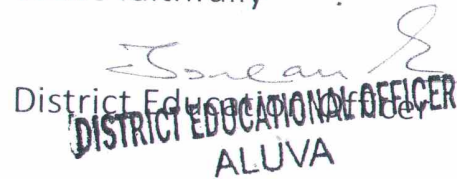 District Educational Officer
DISTRICT EDUCATIONAL OFFICER
ALUVA